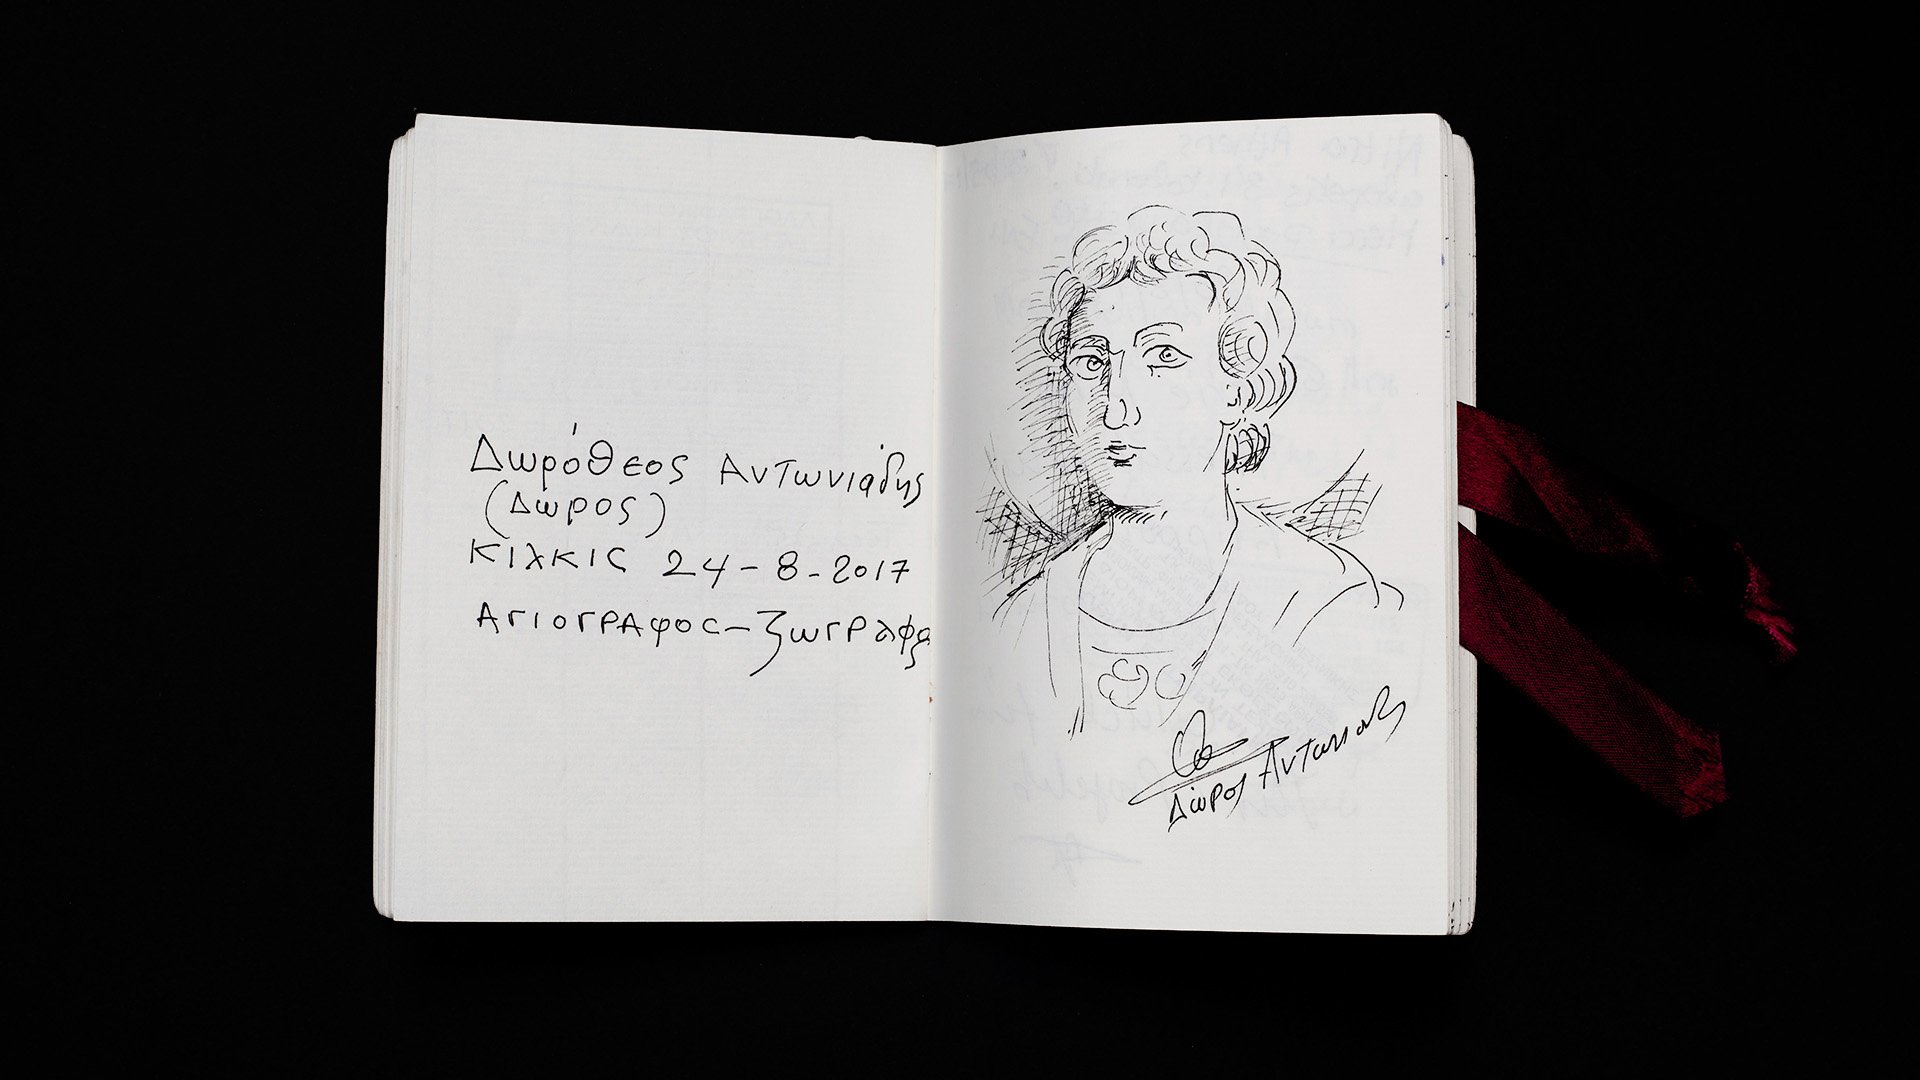 Δωρόθεος Αντωνιάδης
(Δώρος)
ΚΙλΚΙς 24-8-2017
ΑΓΙΟΓΡΑφΟς-ζωΓΡάφος
Δώρος Αντωνιάδης